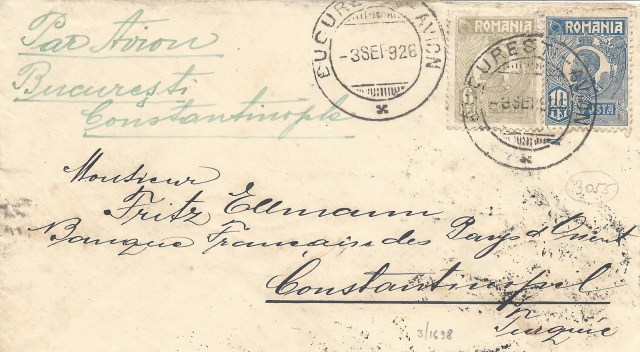 Par Avion
Bucureşti
Constantinople
BUCUREST-AVION
-3SEP.926
ROMANIA
ROMANIA
10
POSTA
Monsieur
Fritz Ellmann
Banque Française des Pays d'Orient
Constantinopel
Turquie
3055
3/1638